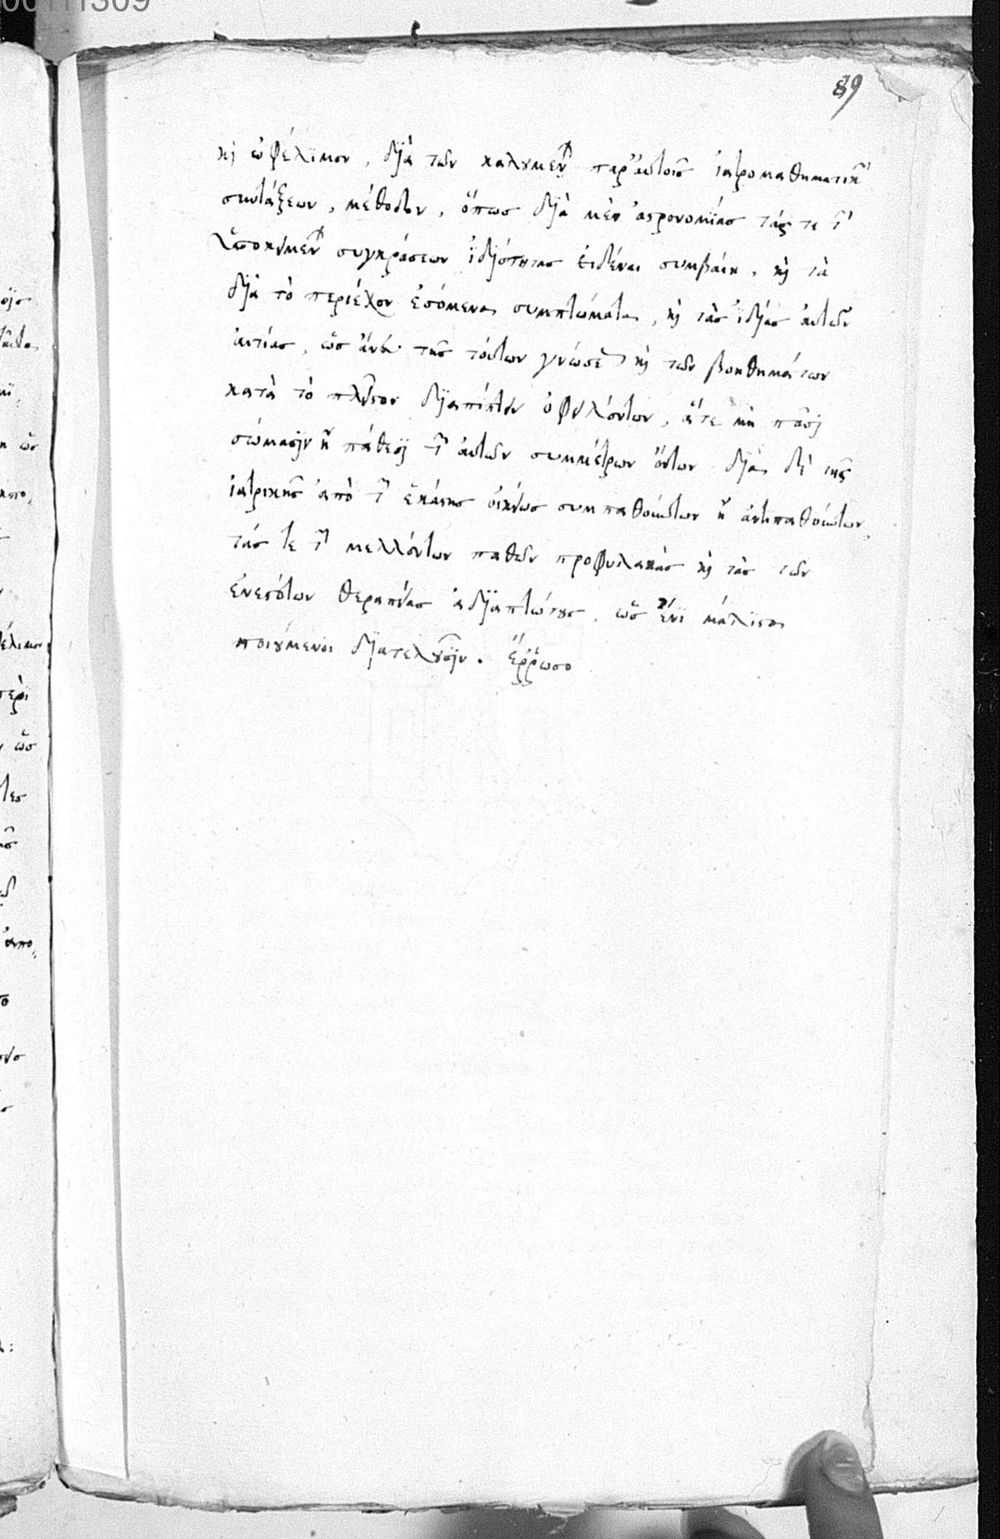 00111309
89
κỳ ὠφέλιμον, διὰ τῶν καλουμένων παρ' αὐτοῖς ἰατρομαθηματικῶν
συντάξεων, μέθοδον, ὅπως διὰ μὲν ἀστρονομίας τάς τε τῶν
ὑποκειμένων συγκράσεων ἰδιότητας εἰδέναι συμβαίη, κỳ τὰ
διὰ τὸ περιέχον ἐσόμενα συμπτώματα, κỳ τὰς ἰδίας αὐτῶν
αἰτίας, ὡς ἄνευ τῆς τούτων γνώσεως κỳ τῶν βοηθημάτων
κατὰ τὸ πλεῖστον διαπίπτειν ὀφειλόντων, ἅτε μὴ πᾶσι
σώμασιν ἢ πάθεσι τῶν αὐτῶν συμμέτρων ὄντων διὰ δὲ τῆς
ἰατρικῆς ἀπὸ τῶν ἑκάστης οἰκείως συμπαθούντων ἢ ἀντιπαθούντων,
τάς τε τῶν μελλόντων παθῶν προφυλακὰς κỳ τὰς τῶν
ἐνεστώτων θεραπείας ἀδιαπτώτους, ὡς ἔνι μάλιστα
ποιούμενοι διατελοῦσιν. ἔῤῥωσο